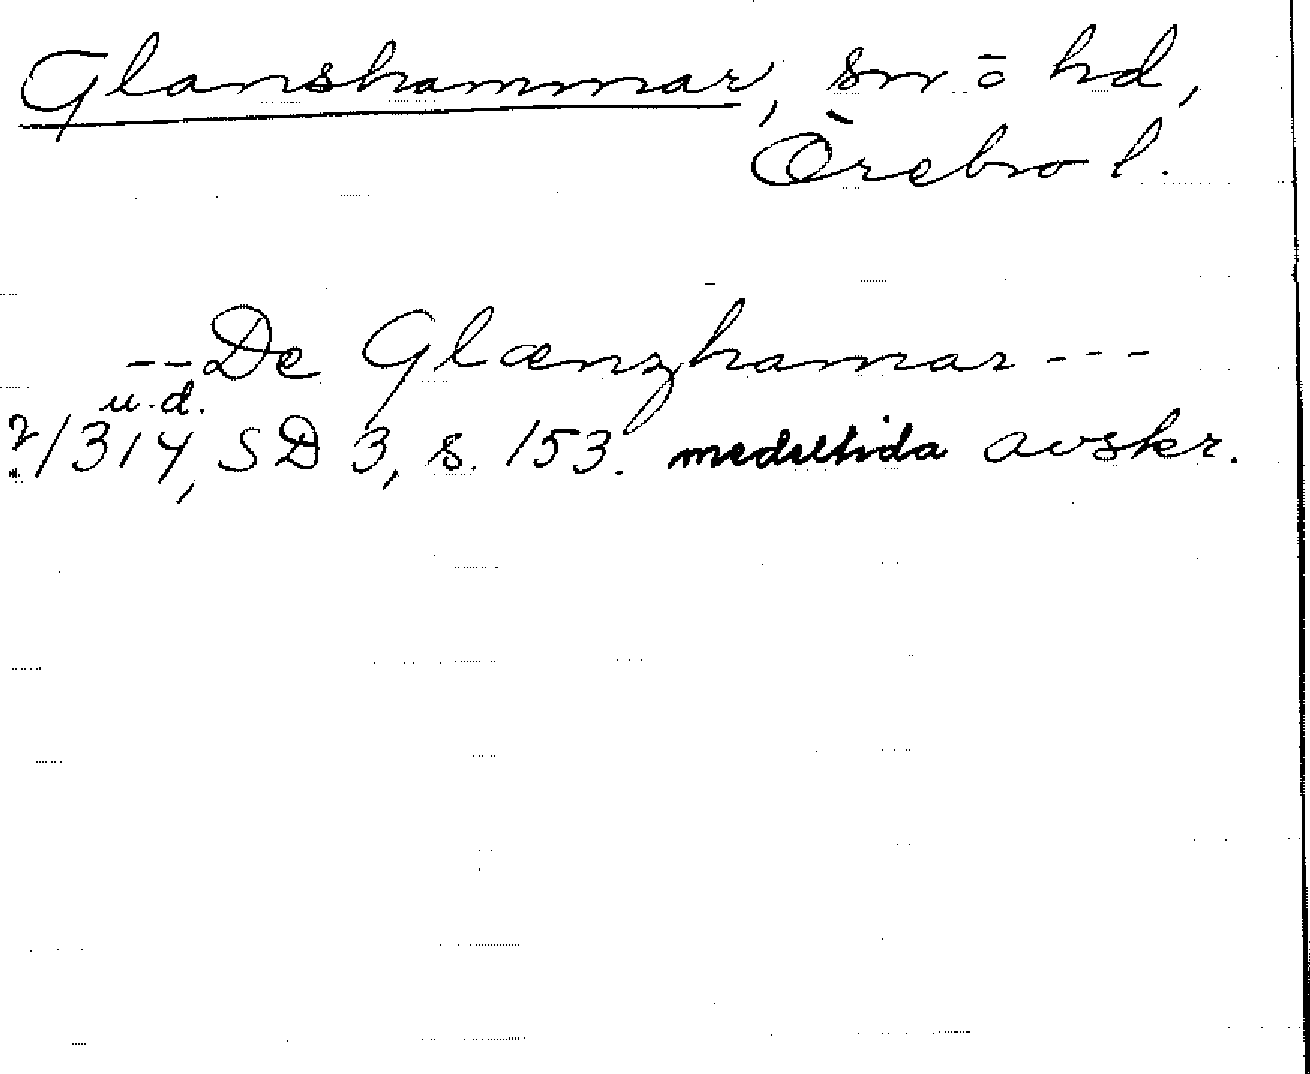 Glanshammar, sn o hd,
Örebro l.
--De Glænzhamar---
u.d.
?/1314, SD 3, s. 153. medeltida avskr.